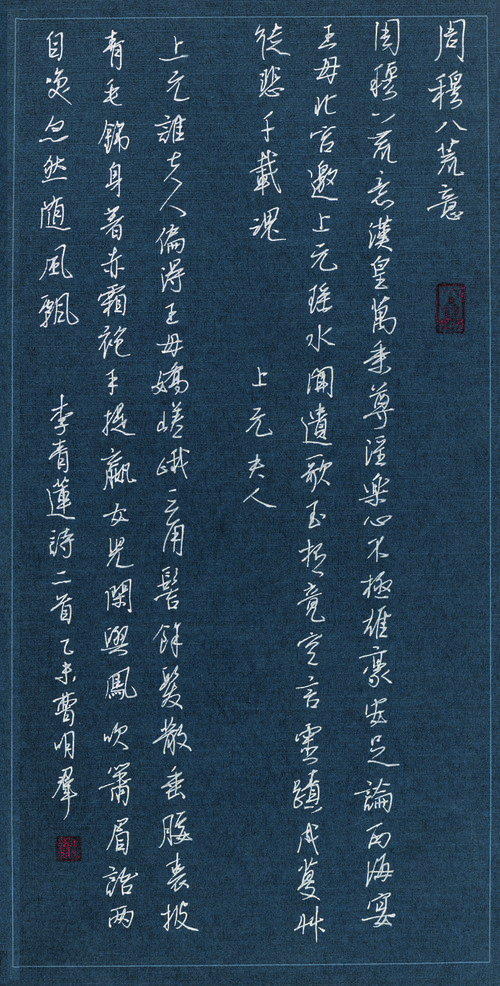 周穆八荒意
周穆八荒意漢皇萬乘尊淫樂心不極雄豪安足論西海宴
王母北宮邀上元瑤水聞遺歌玉杯竟空言靈蹟成蔓艸
徒悲千載魂
上元夫人
上元誰夫人偏得王母嬌嵯峨三角髻餘髮散垂腰裘披
青毛錦身著赤霜袍手提嬴女兒閑與鳳吹簫眉語兩
自笑忽然随風飄
李青蓮詩二首乙未曹明羣